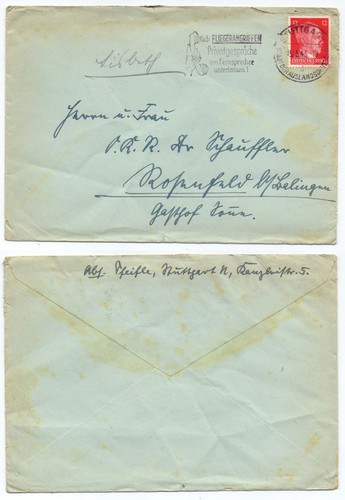 Nach FLIEGERANGRIFFEN
Privatgespräche
am Fernsprecher
unterlassen!
STUTTGART
AUSLANDSD
12 12
DEUTSCHES REICH
Lisbeth
Herrn u. Frau
O.K.R. Dr Schauffler
Rosenfeld b/Balingen
Gasthof Sonne.
Abs. Pfeifle, Stuttgart N, Kanzleistr. 5.